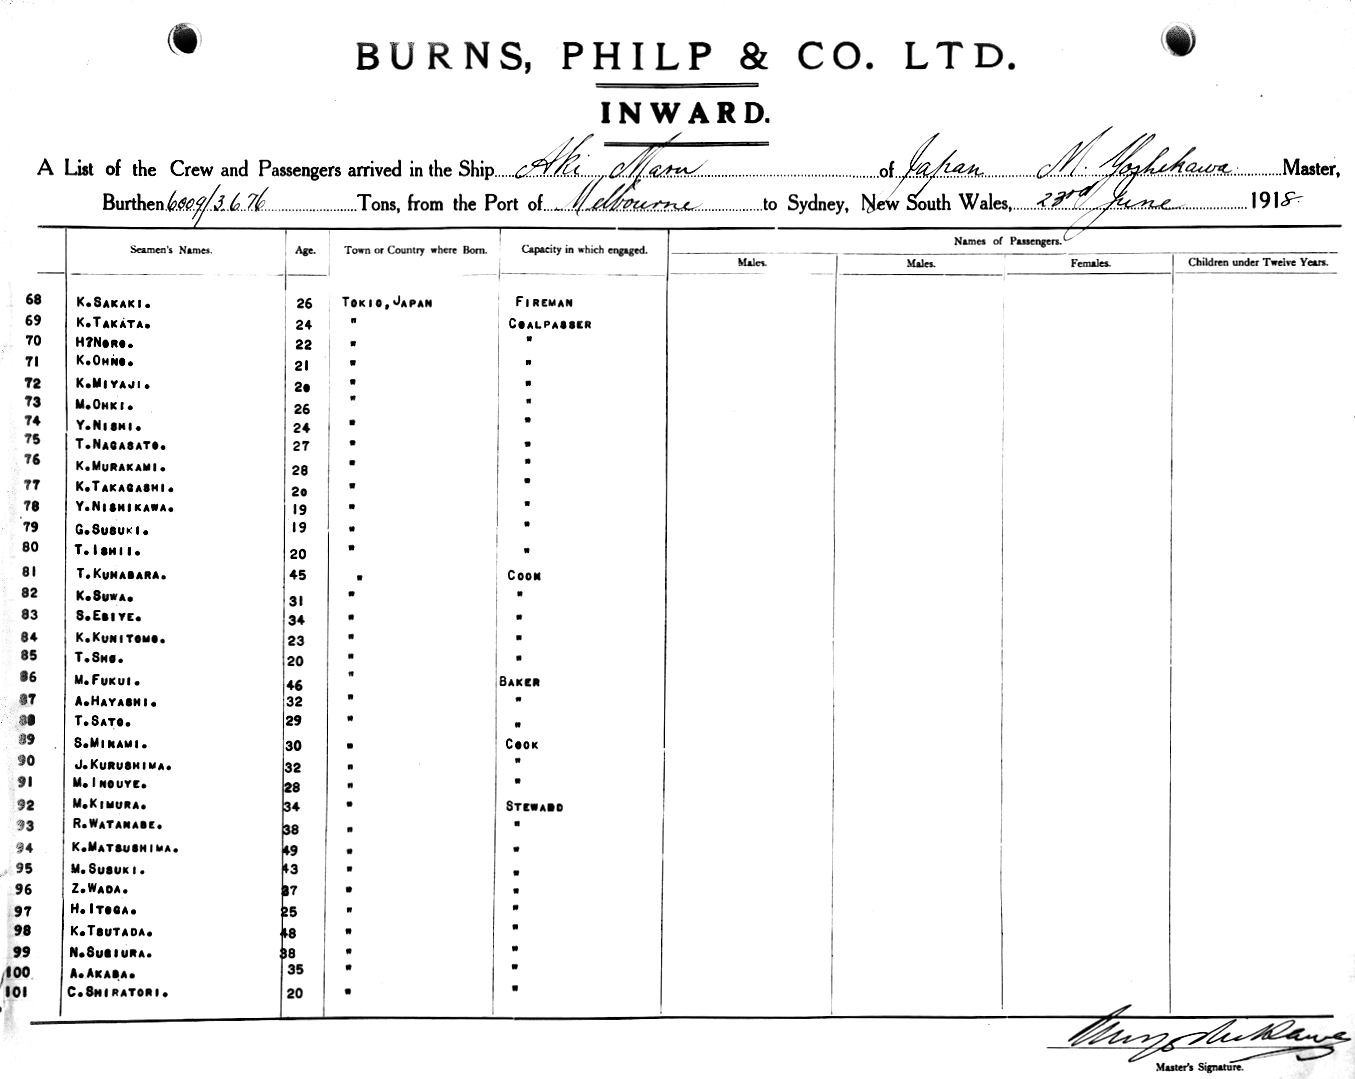 BURNS, PHILP & CO. LTD.
INWARD.
A List of the Crew and Passengers arrived in the Ship Aki Maru of Japan M. Yoshikawa Master,
Burthen 6009/3676 Tons, from the Port of Melbourne to Sydney, New South Wales, 23rd June 1918.
Names of Passengers.
Seamen's Names. Age. Town or Country where Born. Capacity in which engaged. Males. Males. Females. Children under Twelve Years.
68 K.SAKAKI. 26 TOKIO,JAPAN FIREMAN
69 K.TAKATA. 24 " COALPASSER
70 H?NORO. 22 " "
71 K.OHNO. 21 " "
72 K.MIYAJI. 20 " "
73 M.OHKI. 26 " "
74 Y.NISHI. 24 " "
75 T.NAGASATO. 27 " "
76 K.MURAKAMI. 28 " "
77 K.TAKAGASHI. 20 " "
78 Y.NISHIKAWA. 19 " "
79 G.SUSUKI. 19 " "
80 T.ISHII. 20 " "
81 T.KUHABARA. 45 " COOK
82 K.SUWA. 31 " "
83 S.EBIYE. 34 " "
84 K.KUNITOMO. 23 " "
85 T.SHO. 20 " "
86 M.FUKUI. 46 " BAKER
87 A.HAYASHI. 32 " "
88 T.SATO. 29 " "
89 S.MINAMI. 30 " COOK
90 J.KURUSHIMA. 32 " "
91 M.INOUYE. 28 " "
92 M.KIMURA. 34 " STEWARD
93 R.WATANABE. 38 " "
94 K.MATSUSHIMA. 49 " "
95 M.SUSUKI. 43 " "
96 Z.WADA. 37 " "
97 H.ITOGA. 25 " "
98 K.TSUTADA. 48 " "
99 N.SUGIURA. 38 " "
100 A.AKABA. 35 " "
101 C.SHIRATORI. 20 " "
Master's Signature.